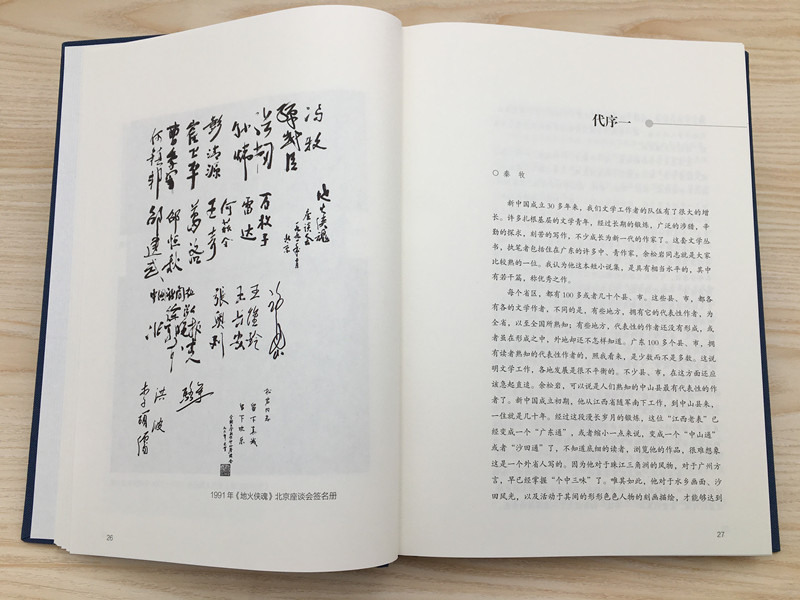 冯牧
地火侠魂
座谈会
一九九一年十月
北京
百牧子
雷达
何启治
彭清源
葛洛
邵恒秋
王愿坚
张奥列
洪波
留下真诚
留下快乐
1991年《地火侠魂》北京座谈会签名册
26
代序一
○ 秦 牧
新中国成立30多年来，我们文学工作者的队伍有了很大的增
长。许多扎根基层的文学青年，经过长期的锻炼，广泛的涉猎，辛
勤的探求，刻苦的写作，不少成长为新一代的作家了。这套文学丛
书，执笔者包括住在广东的许多中、青作家，余松岩同志就是大家
比较熟的一位。我认为他这本短小说集，是具有相当水平的，其中
有若干篇，称优秀之作。
每个省区，都有100多或者几十个县、市。这些县、市，都各
有各的文学作者，不同的是，有些地方，拥有它的代表性作者，为
全省，以至全国所熟知；有些地方，代表性的作者还没有形成，或
者虽在形成之中，外地却还不怎样知道。广东100多个县、市，拥
有读者熟知的代表性作者的，照我看来，是少数而不是多数。这说
明文学工作，各地发展是很不平衡的。不少县、市，在这方面还应
该急起直追。余松岩，可以说是人们熟知的中山县最有代表性的作
者了。新中国成立初期，他从江西省随军南下工作，到中山县来，
一住就是几十年。经过这段漫长岁月的锻炼，这位“江西老表”已
经变成一个“广东通”，或者缩小一点来说，变成一个“中山通”
或者“沙田通”了，不知道底细的读者，浏览他的作品，很难想象
这是一个外省人写的。因为他对于珠江三角洲的风物，对于广州方
言，早已经掌握“个中三味”了。唯其如此，他对于水乡画面、沙
田风光，以及活动于其间的形形色色人物的刻画描绘，才能够达到
27